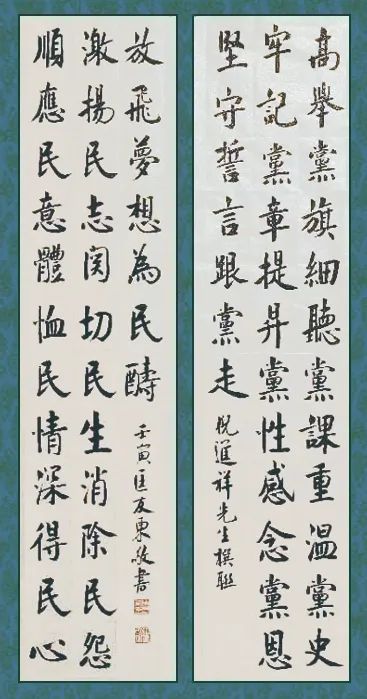 高舉黨旗細聽黨課重溫黨史
牢記黨章提昇黨性感念黨恩
堅守誓言跟黨走
進祥先生撰聯
順應民意體恤民情深得民心
激揚民志関切民生消除民怨
放飛夢想為民醻
壬寅匡友東敬書